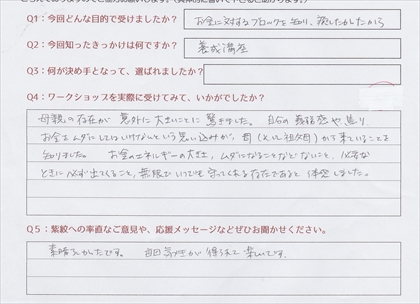 Q1：今回どんな目的で受けましたか？
お金に対するブロックを知り、減したかったから
Q2：今回知ったきっかけは何ですか？
養成講座
Q3：何が決め手となって、選ばれましたか？
Q4：ワークショップを実際に受けてみて、いかがでしたか？
母親の存在が意外に大きいことに驚きました。自分の無価値や焦り
お金をムダにしてはいけないという思い込みが、母（そして祖父母）から来ていることを
知りました。お金のエネルギーの大きさ、ムダになることなどないこと、必要な
ときに必ず出てくること、無限でいつでも守ってくれる存在であると体感しました。
Q5：紫紋への率直なご意見や、応援メッセージなどぜひお聞かせください。
素晴らしかったです。毎回気づきが得られて楽しいです。